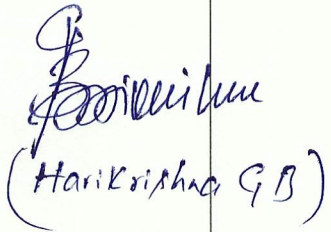 (Harikrishna G B)